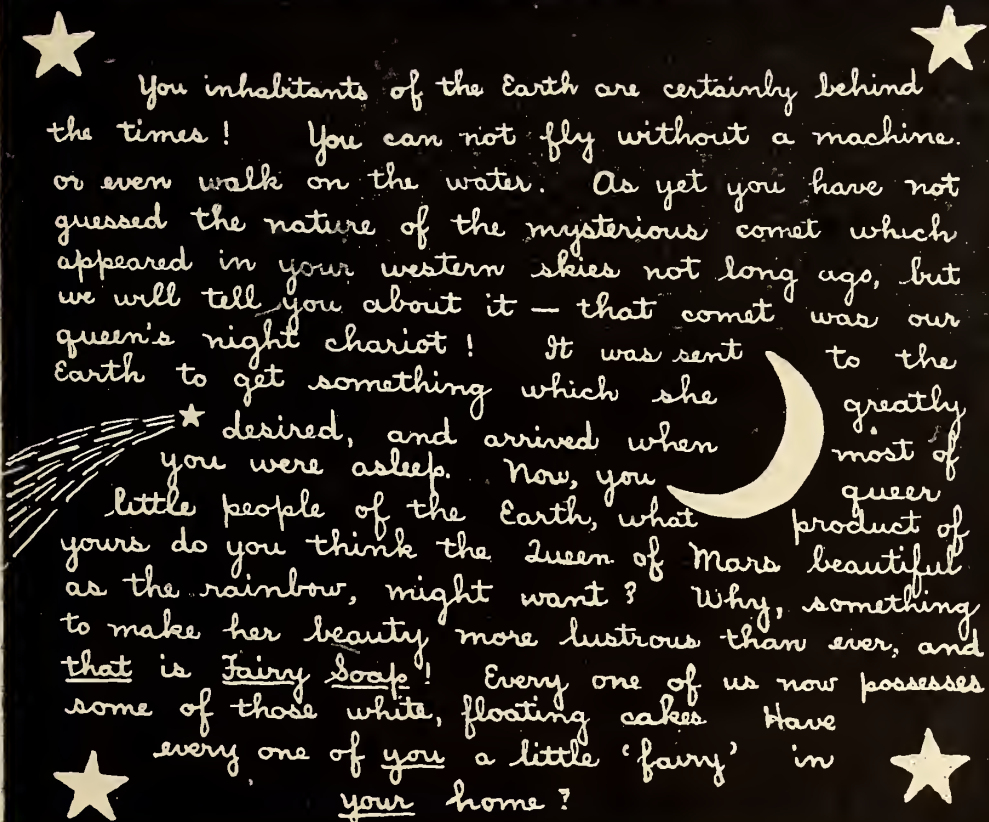 You inhabitants of the Earth are certainly behind
the times! You can not fly without a machine.
or even walk on the water. As yet you have not
guessed the nature of the mysterious comet which
appeared in your western skies not long ago, but
we will tell you about it — that comet was our
queen's night chariot! It was sent to the
Earth to get something which she greatly
desired, and arrived when most of
you were asleep. Now, you queer
little people of the Earth, what product of
yours do you think the Queen of Mars beautiful
as the rainbow, might want? Why, something
to make her beauty more lustrous than ever, and
that is Fairy Soap! Every one of us now possesses
some of those white, floating cakes Have
every one of you a little 'fairy' in
your home?